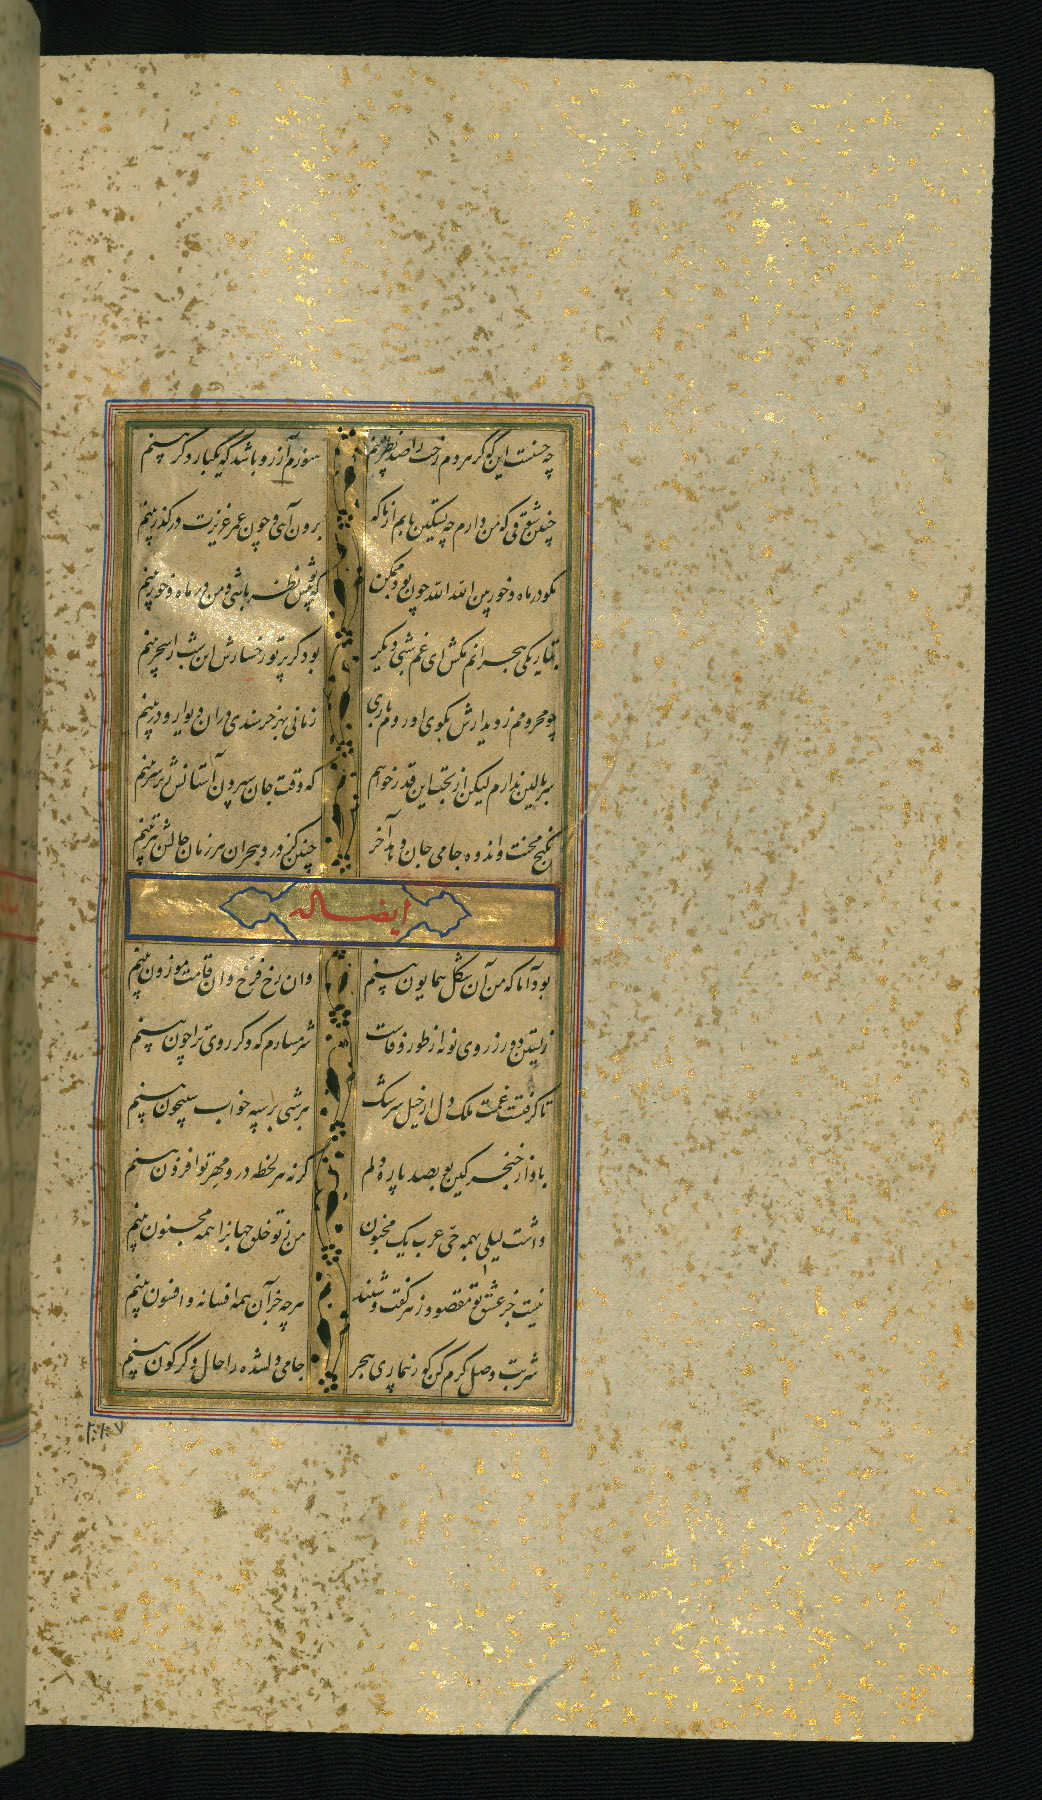 چه حسنست این که گر هر دم رخت را صد نظر بینم هنوزم آرزو باشد که یکبار دگر بینم
چنین شوقی که من دارم چه تسکین یابم از آن که برون آیی و چون عمر عزیزت در گذر بینم
مگو در ماه و خور بین الله الله چون بود ممکن که تو پیش نظر باشی و من در ماه و خور بینم
بتاریکی هجرانم مکش ای غم شبی دیگر بود کز پرتو رخسارش این شب را سحر بینم
چو محرومم ز دیدارش بکوی او روم باری زمانی بهر خرسندی در آن دیوار و در بینم
سر بالین ندارم لیکن از بخت این قدر خواهم که وقت جان سپردن آستانش زیر سر بینم
بکنج محنت و اندوه جامی جان دهد آخر چنین کز درد هجران هر زمان حالش بتر بینم
ایضا له
بود آیا که من آن شکل همایون بینم وان رخ فرخ وان قامت موزون بینم
زیستن دور ز روی تو نه از طور وفاست شرمسارم که دگر روی ترا چون بینم
تا گرفتست غمت ملک دل از خیل سرشک هر شبی بر سپه خواب شبیخون بینم
باد از خنجر کین تو بصد پاره دلم گر نه هر لحظه درو مهر تو افزون بینم
داشت لیلی بهمه حی عرب یک مجنون من ز تو خلق جهانرا همه مجنون بینم
نیست جز عشق تو مقصود ز هر گفت و شنید هر چه جز آن همه افسانه و افسون بینم
شربت وصل کرم کن که ز بیماری هجر جامی دلشده را حال دگرگون بینم